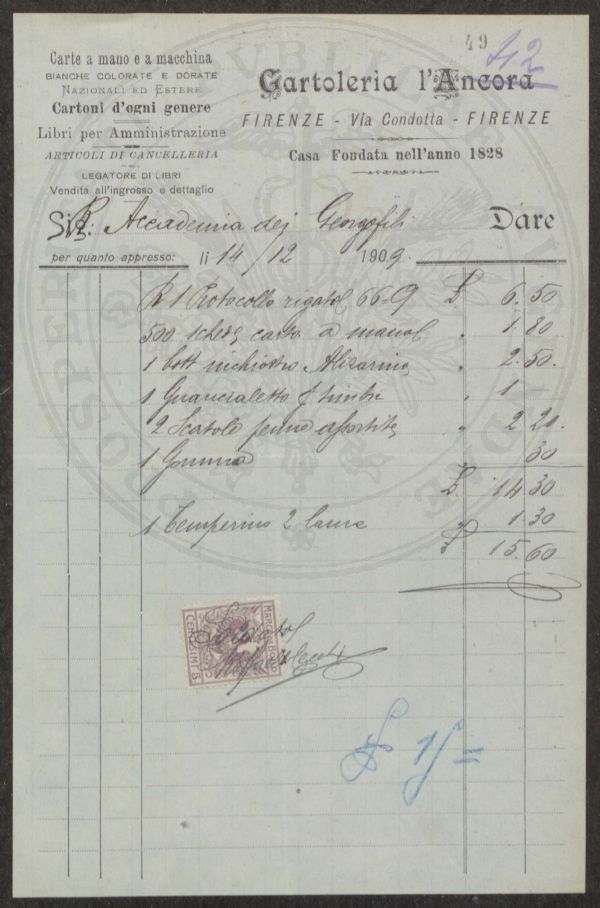 49
112
Carte a mano e a macchina
BIANCHE COLORATE E DORATE
NAZIONALI ED ESTERE
Cartoni d'ogni genere
Libri per Amministrazione
ARTICOLI DI CANCELLERIA
LEGATORE DI LIBRI
Vendita all'ingrosso e dettaglio
Cartoleria l'Ancora
FIRENZE - Via Condotta - FIRENZE
Casa Fondata nell'anno 1828
Accademia dei Georgofili Dare
per quanto appresso: li 14/12 1909.
1 Protocollo rigato 66-9 £ 6.50
500 schede carta a mano " 1.80
1 bott inchiostro Alizarina " 2.50.
1 Guancialetto p timbri " 1
2 Scatole penne assortite " 2 20.
1 Gomma 30
£ 14.30
1 Temperino 2 lame " 1.30
£ 15.60
MARCA DA BOLLO
CENTESIMI 5
Saldato
£ 15=